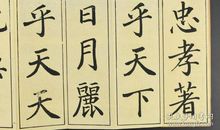 忠孝著
乎天下
日月麗
乎天天